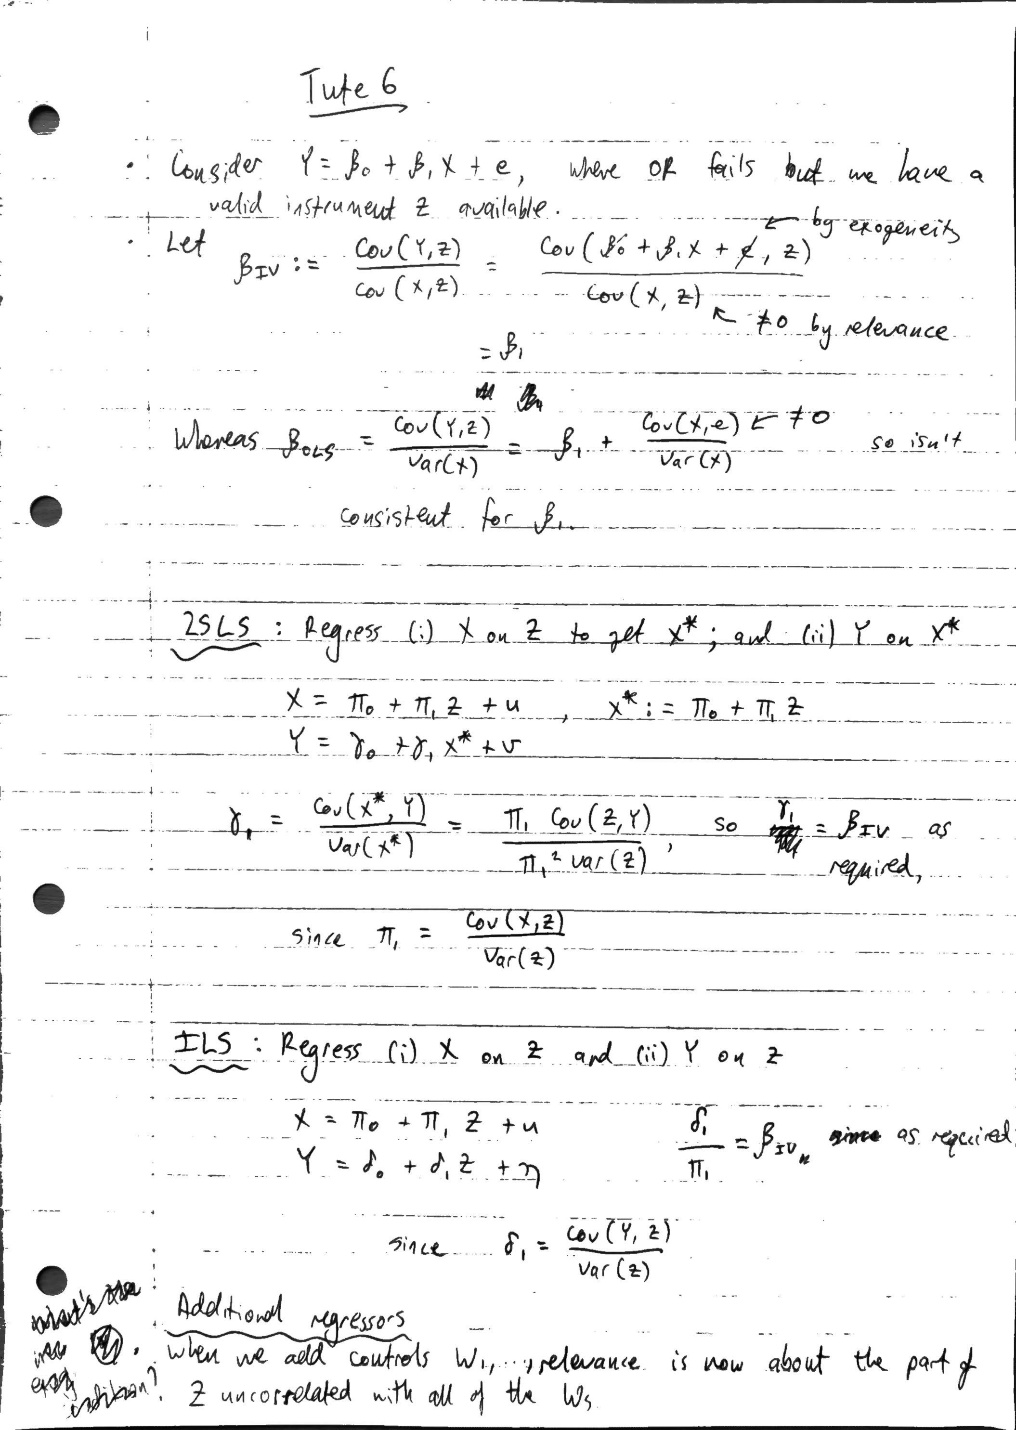 Tute 6
• Consider Y = β₀ + β₁X + e, where OR fails but we have a
valid instrument Z available.
← by exogeneity
• Let β_IV := Cov(Y,Z)/Cov(X,Z) = Cov(β₀ + β₁X + e, Z)/Cov(X,Z)
↖ ≠0 by relevance
= β₁
Whereas β_OLS = Cov(Y,Z)/Var(X) = β₁ + Cov(X,e)/Var(X) ← ≠0 so isn't
consistent for β₁.
2SLS : Regress (i) X on Z to get X*; and (ii) Y on X*
X = π₀ + π₁Z + u , X* := π₀ + π₁Z
Y = γ₀ + γ₁X* + v
γ₁ = Cov(X*,Y)/Var(X*) = π₁ Cov(Z,Y)/π₁² Var(Z) , so γ₁ = β_IV as
required,
since π₁ = Cov(X,Z)/Var(Z)
ILS : Regress (i) X on Z and (ii) Y on Z
X = π₀ + π₁Z + u
δ₁/π₁ = β_IV, as required
Y = δ₀ + δ₁Z + η
since δ₁ = Cov(Y,Z)/Var(Z)
Additional regressors
• When we add controls W₁,..., relevance is now about the part of
Z uncorrelated with all of the Ws